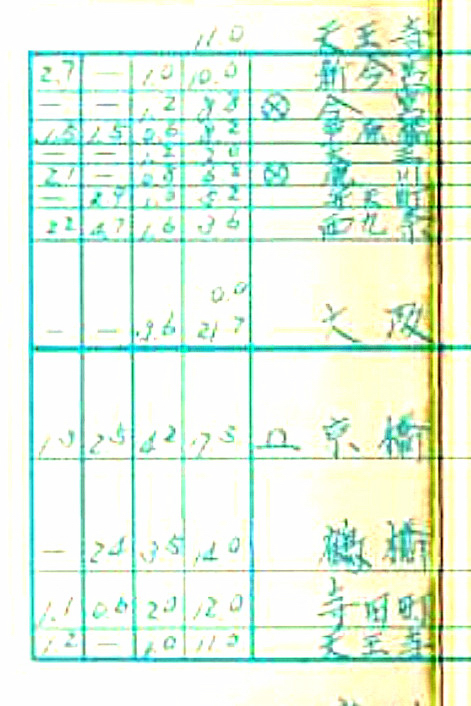 11.0 天王寺
2.7 — 1.0 10.0 新今宮
— — 1.2 8.8 ⊗ 今宮
1.5 1.5 0.6 8.2 芦原橋
— — 1.2 7.0 大正
2.1 — 0.8 6.2 ⊗ 境川
— 2.9 1.0 5.2 弁天町
2.2 4.7 1.6 3.6 西九条
0.0
— — 3.6 21.7 大阪
1.3 2.5 4.2 17.5 京橋
— 2.4 3.5 14.0 鶴橋
1.1 0.6 2.0 12.0 寺田町
1.2 — 1.0 11.0 天王寺